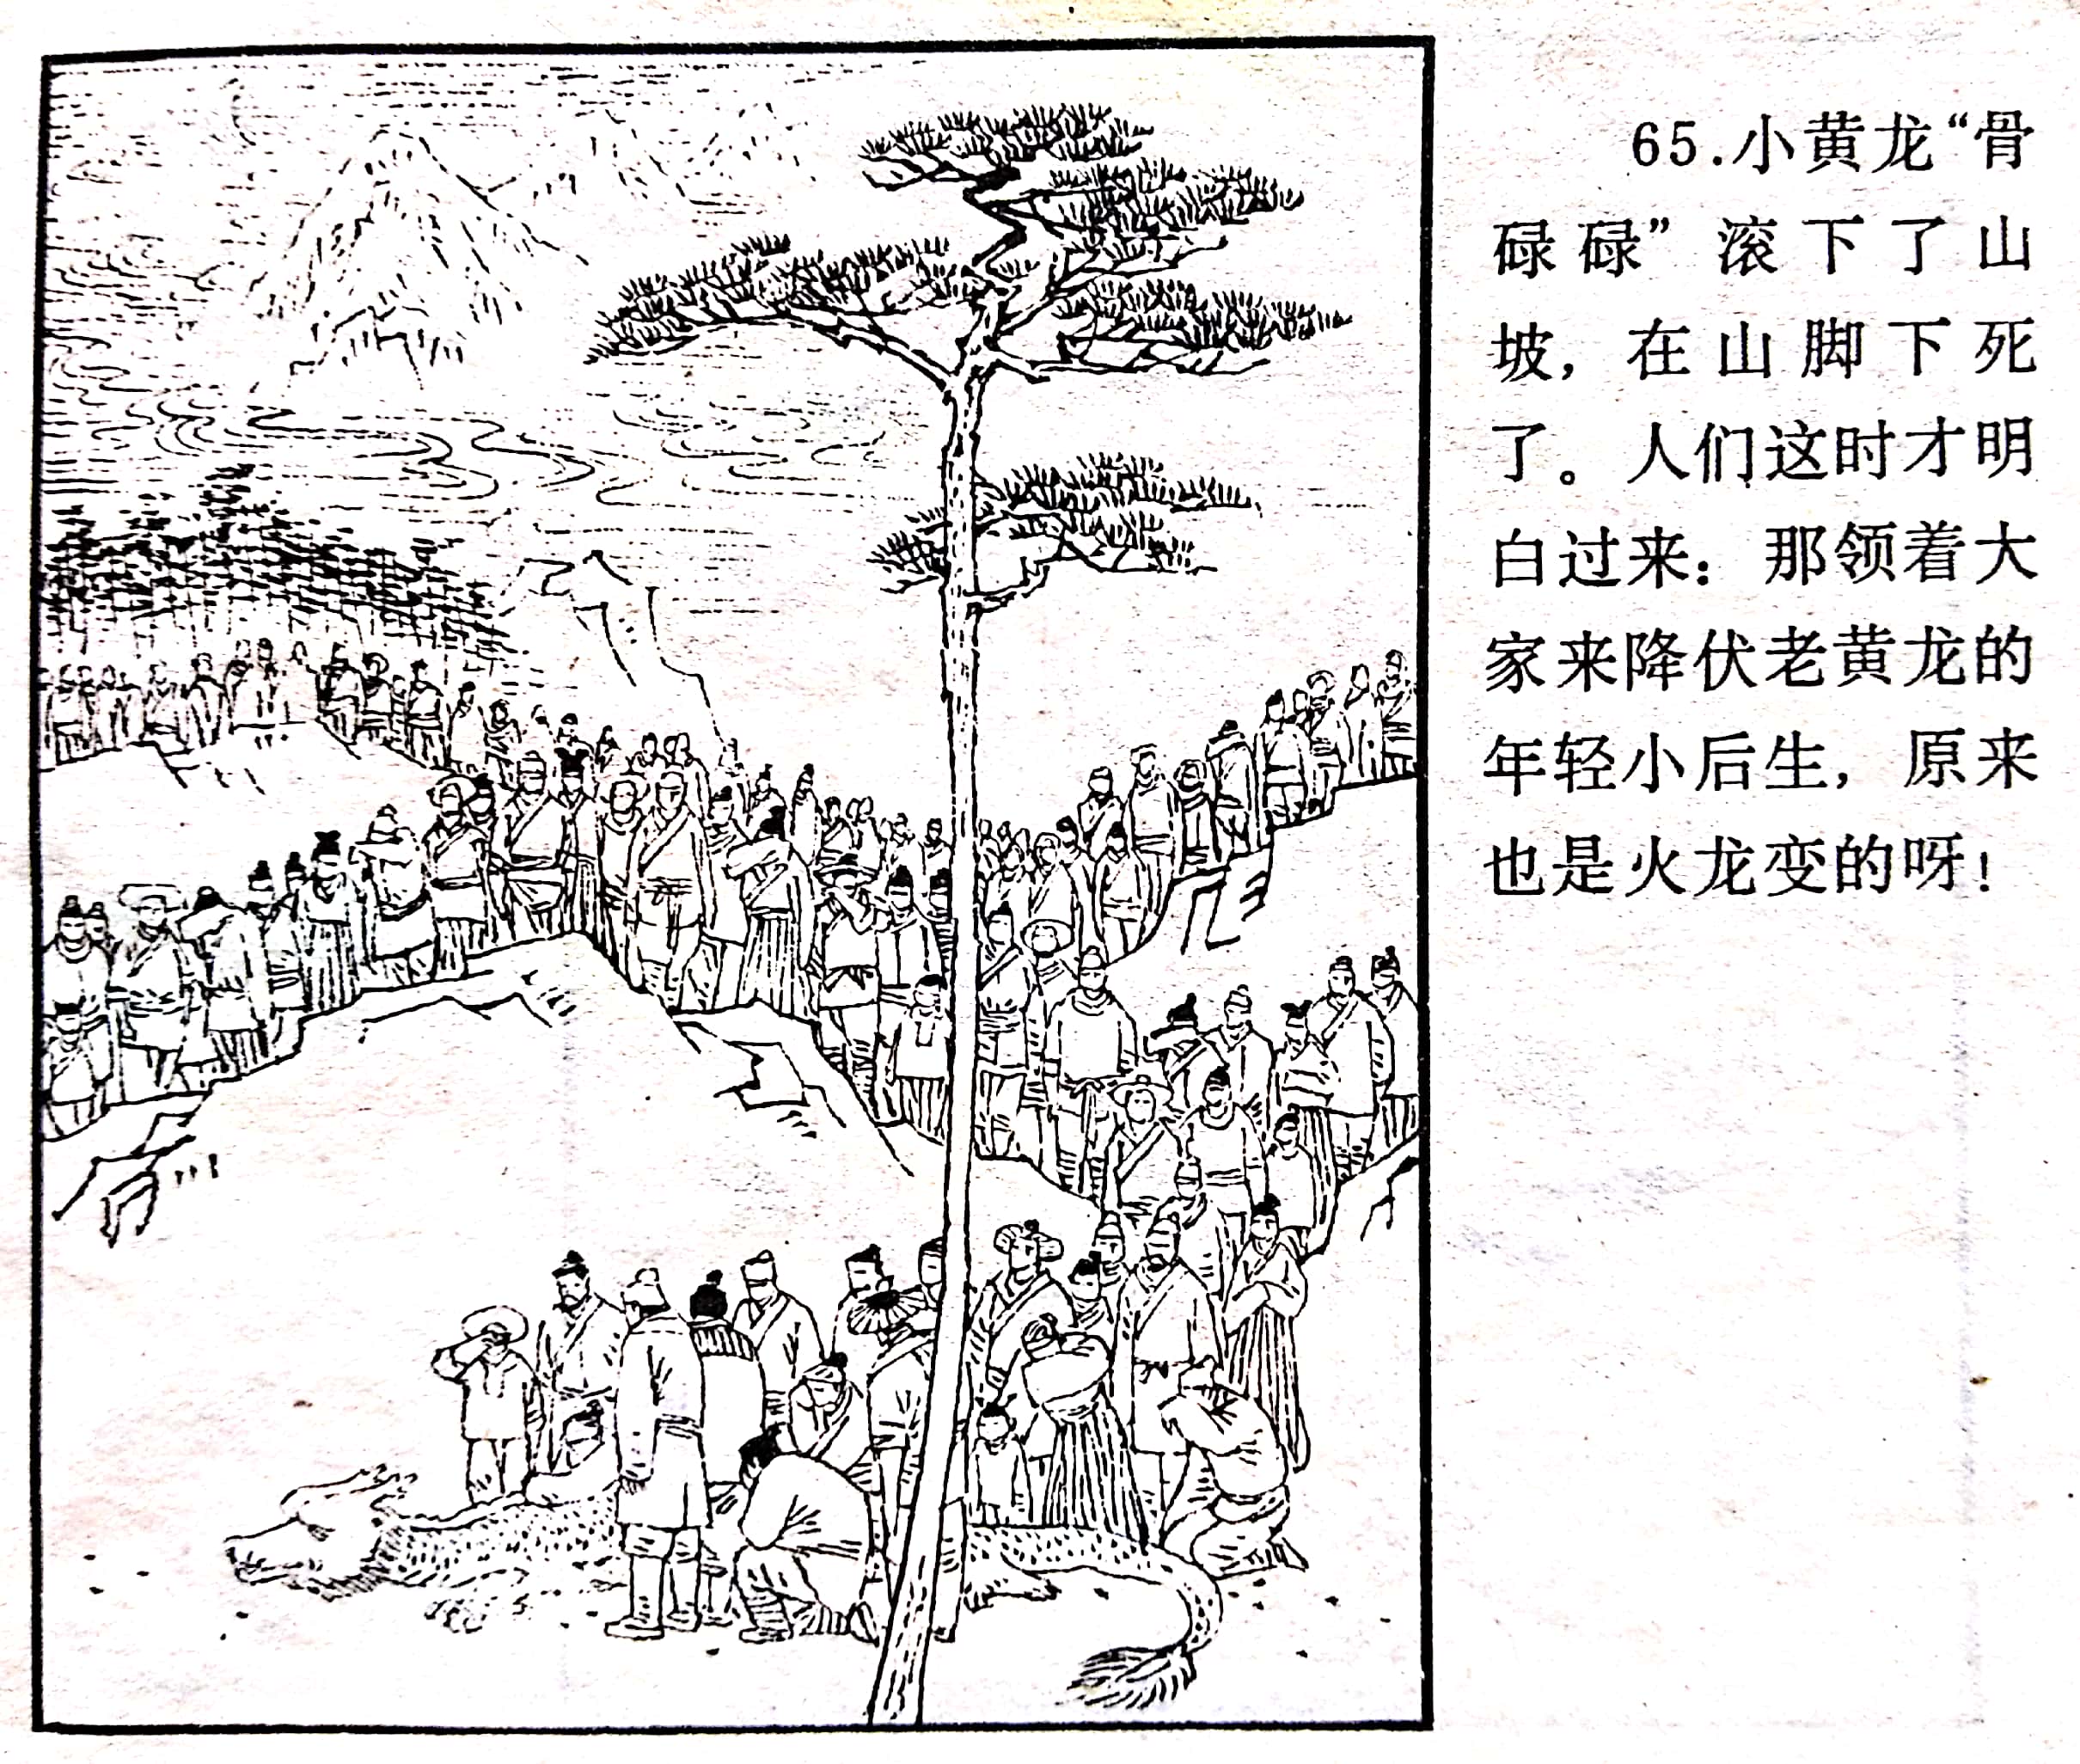 65.小黄龙“骨
碌碌”滚下了山
坡，在山脚下死
了。人们这时才明
白过来：那领着大
家来降伏老黄龙的
年轻小后生，原来
也是火龙变的呀！